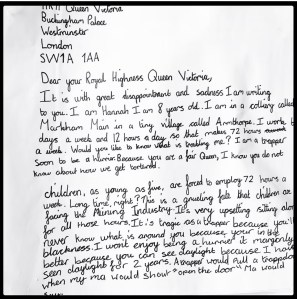 HRH Queen Victoria
Buckingham Palace
Westminster
London
SW1A 1AA
Dear your Royal Highness Queen Victoria,
It is with great disappointment and sadness I am writing
to you. I am Hannah I am 8 years old. I am in a colliery called
Markham Main in a tiny village called Armthorpe. I work
days a week and 12 hours a day so that makes 72 hours
a week. Would you like to know what is troubling me? I am a trapper
Soon to be a Because you are a fair Queen, I know you do not
know about how we get tortured.
children, as young as five, are forced to employ 72 hours a
week. Long time, right? This is a grueling fate that children are
facing the Mining Industry It's very upsetting sitting alon
for all those hours. It's tragic as a trapper because you'll
never know what is around you because your in the
blackness. I wont enjoy being a it
better because you can see daylight because I hav
seen daylight for 2 years. A trapper would pull a trapdoo
when my ma would shout "open the door" Ma would